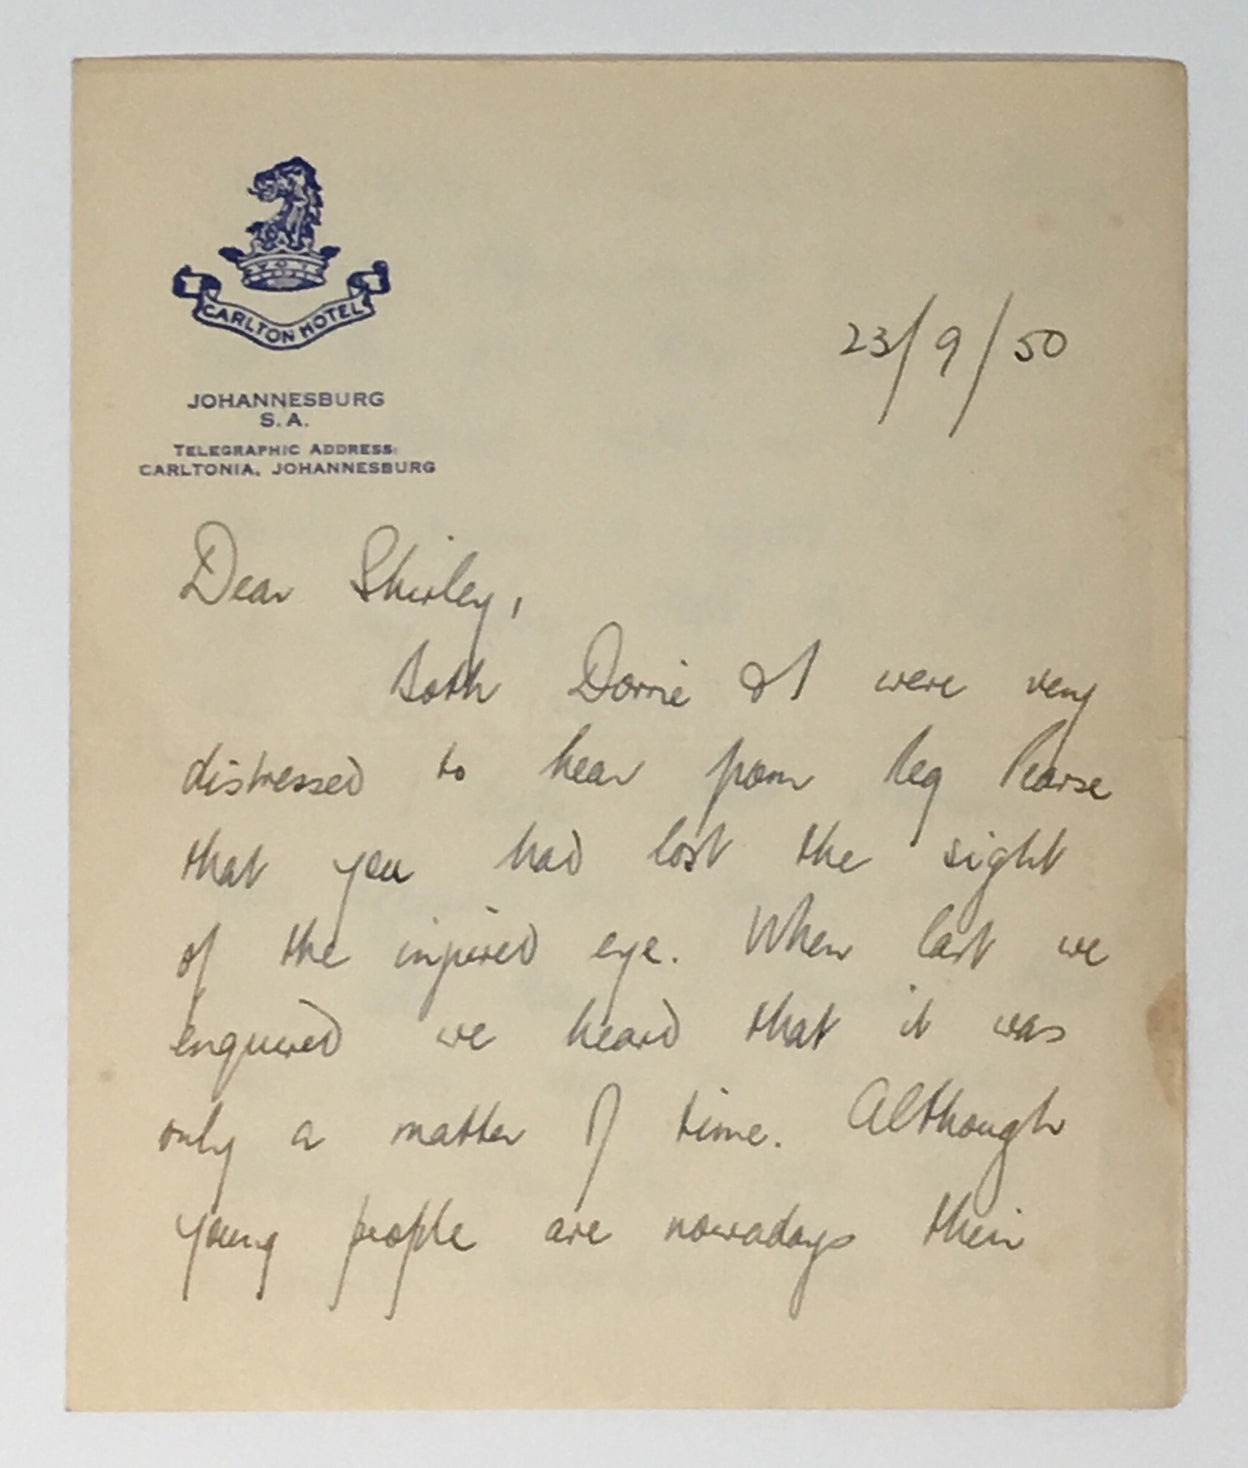 CARLTON HOTEL
JOHANNESBURG
S.A.
TELEGRAPHIC ADDRESS:
CARLTONIA, JOHANNESBURG
23/9/50
Dear Shirley,
Both Dorrie & I were very
distressed to hear from Reg Pearse
that you had lost the sight
of the injured eye. When last we
enquired we heard that it was
only a matter of time. Although
young people are nowadays their